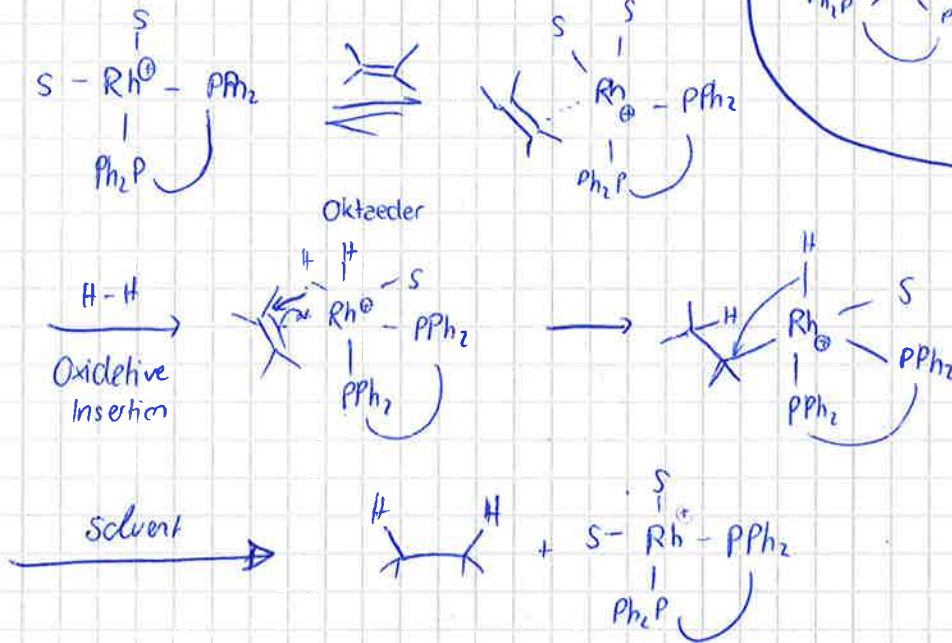 S
S – Rh⊕ – PPh₂
Ph₂P
S S
Rh
⊕ – PPh₂
Ph₂P
Ph₂P
P
Oktaeder
H–H
Oxidetive
Insertion
H H
Rh⊕ – S
– PPh₂
PPh₂
H
H
Rh
⊕
S
PPh₂
PPh₂
Solvent
H H
+
S
S– Rh⁺ – PPh₂
Ph₂P